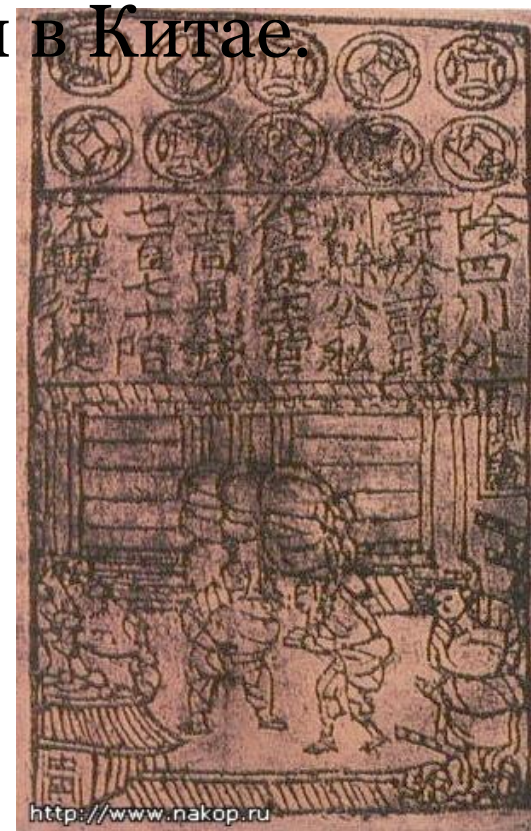 в Китае.
除四川外
許於諸路
州縣公私
從便主管
並同見錢
七百七十陌
流轉行使
http://www.nakop.ru